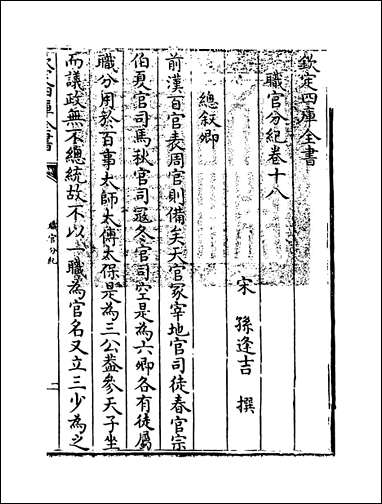 欽定四庫全書
職官分紀卷十八
宋 孫逢吉 撰
總叙卿
前漢百官表周官則備矣天官冢宰地官司徒春官宗
伯夏官司馬秋官司寇冬官司空是為六卿各有徒屬
職分用於百事太師太傅太保是為三公葢參天子坐
而議政無不總統故不以一職為官名又立三少為之
職官分紀